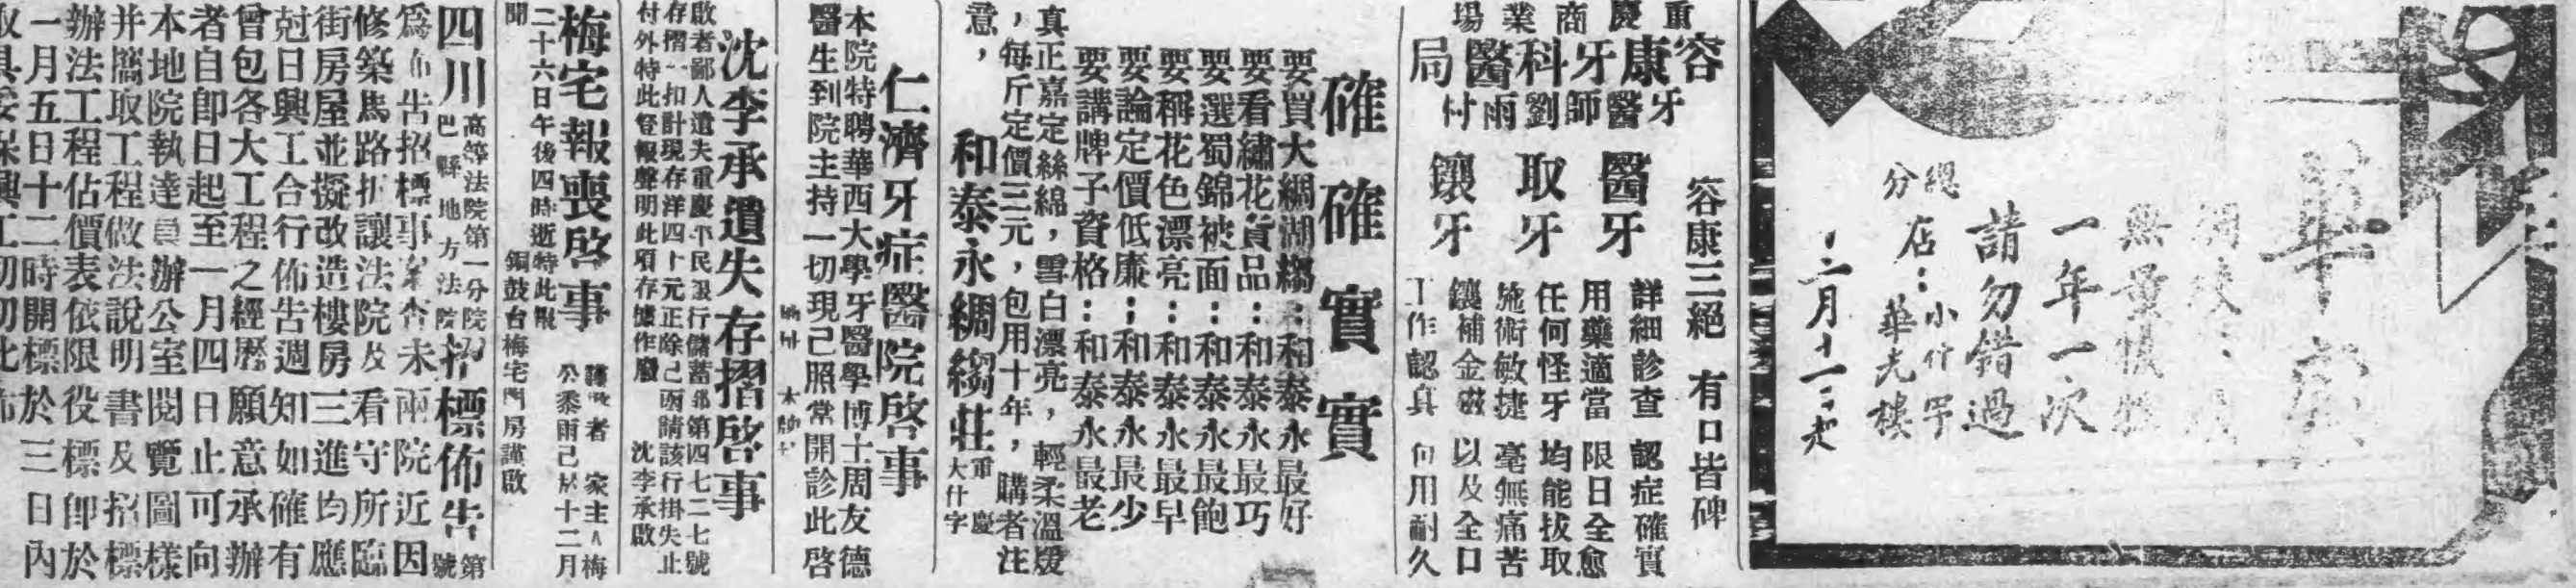 總
分
店：小什字
華光樓
請勿錯過
一年一次
十二月十一日起
重慶商業場
容康牙科醫局
牙醫師劉雨村
容康三絕 有口皆碑
醫牙
詳細診查 認症確實
用藥適當 限日全愈
取牙
任何怪牙 均能拔取
施術敏捷 毫無痛苦
鑲牙
鑲補金磁 以及全口
工作認真 向用耐久
確確實實
要買大綢湖縐：和泰永最好
要看繡花貨品：和泰永最巧
要選蜀錦被面：和泰永最飽
要稱花色漂亮：和泰永最早
要論定價低廉；和泰永最少
要講牌子資格：和泰永最老
真正嘉定絲綿，雪白漂亮，輕柔溫煖
，每斤定價三元，包用十年，購者注
意，
和泰永綢縐莊 重慶大什字
仁濟牙症醫院啓事
本院特聘華西大學牙醫學博士周友德
醫生到院主持一切現已照常開診此啓
沈李承遺失存摺啓事
啟者鄙人遺失重慶平民銀行儲蓄部第四七二七號
存摺一扣計現存洋四十元正除已函請該行掛失止
付外特此登報聲明此項存據作廢 沈李承啟
梅宅報喪啓事
家主人梅
公黍雨已於十二月
二十六日午後四時逝特此報
聞
銅鼓台梅宅門房謹啟
四川高等法院第一分院
巴縣地方法院招標佈告 第號
為佈告招標事案查本兩院近因
修築馬路拆讓法院及看守所臨
街房屋並擬改造樓房三進均應
尅日興工合行佈告週知如確有
曾包各大工程之經歷願意承辦
者自卽日起至一月四日止可向
本地院執達員辦公室閱覽圖樣
并攜取工程做法說明書及招標
辦法工程估價表依限役標卽於
一月五日十二時開標於三日內
取具妥保興工切切此佈